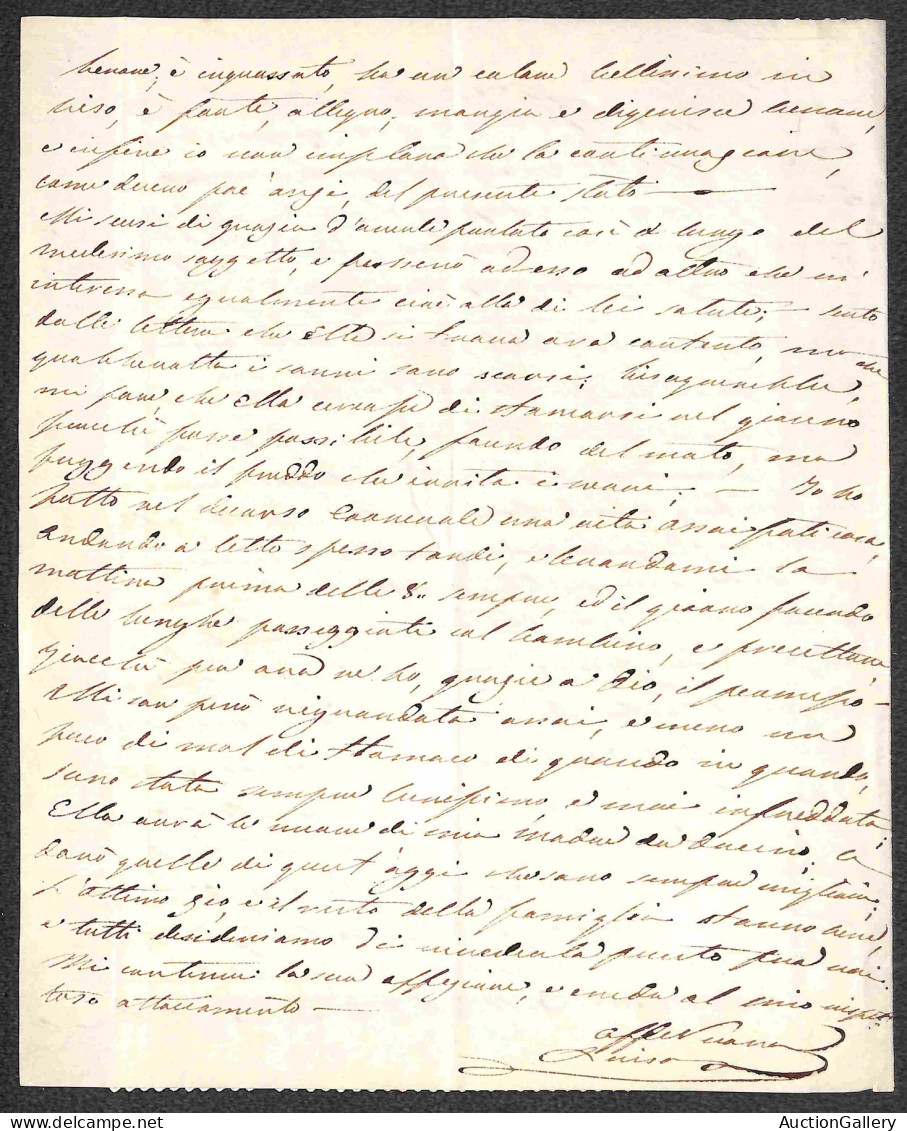 benone, è ingrassato, ha un colore bellissimo in
viso, è forte, allegro, mangia e digerisce benone,
e infine io non imploro che la continuazione,
come dicevo poc'anzi, del presente stato —
Mi scusi di grazia d'averle parlato così a lungo del
medesimo soggetto, e passerò adesso ad altro che mi
interessa egualmente cioè alla di lei salute; — sento
dalle lettere che Ella si trova ora contento, ma che
qualche notte i sonni sono scarsi; bisognerebbe,
mi pare, che Ella cercasse di stancarsi nel giorno
perciò fosse possibile, facendo del moto, ma
fuggendo il freddo che irrita i nervi; — Io ho
fatto nel decorso Carnevale una vita assai faticosa,
andando a letto spesso tardi, e levandomi la
mattina prima delle 8. sempre, ed il giorno facendo
delle lunghe passeggiate col bambino, e
giacchè per ora ne ho, grazie a Dio, il permesso —
Mi son però riguardata assai, e meno un
poco di mal di stomaco di quando in quando,
sono stata sempre benissimo, e mai infreddata;
Ella avrà le nuove di mia madre da
darò quelle di quest'oggi che sono sempre migliori;
l'ottimo zio, e il resto della famiglia stanno bene,
e tutti desideriamo di rivederla presto fra noi.
Mi continui la sua affezione, e creda al mio rispet-
toso attaccamento —
aff. Nuora
Luisa
AuctionGallery